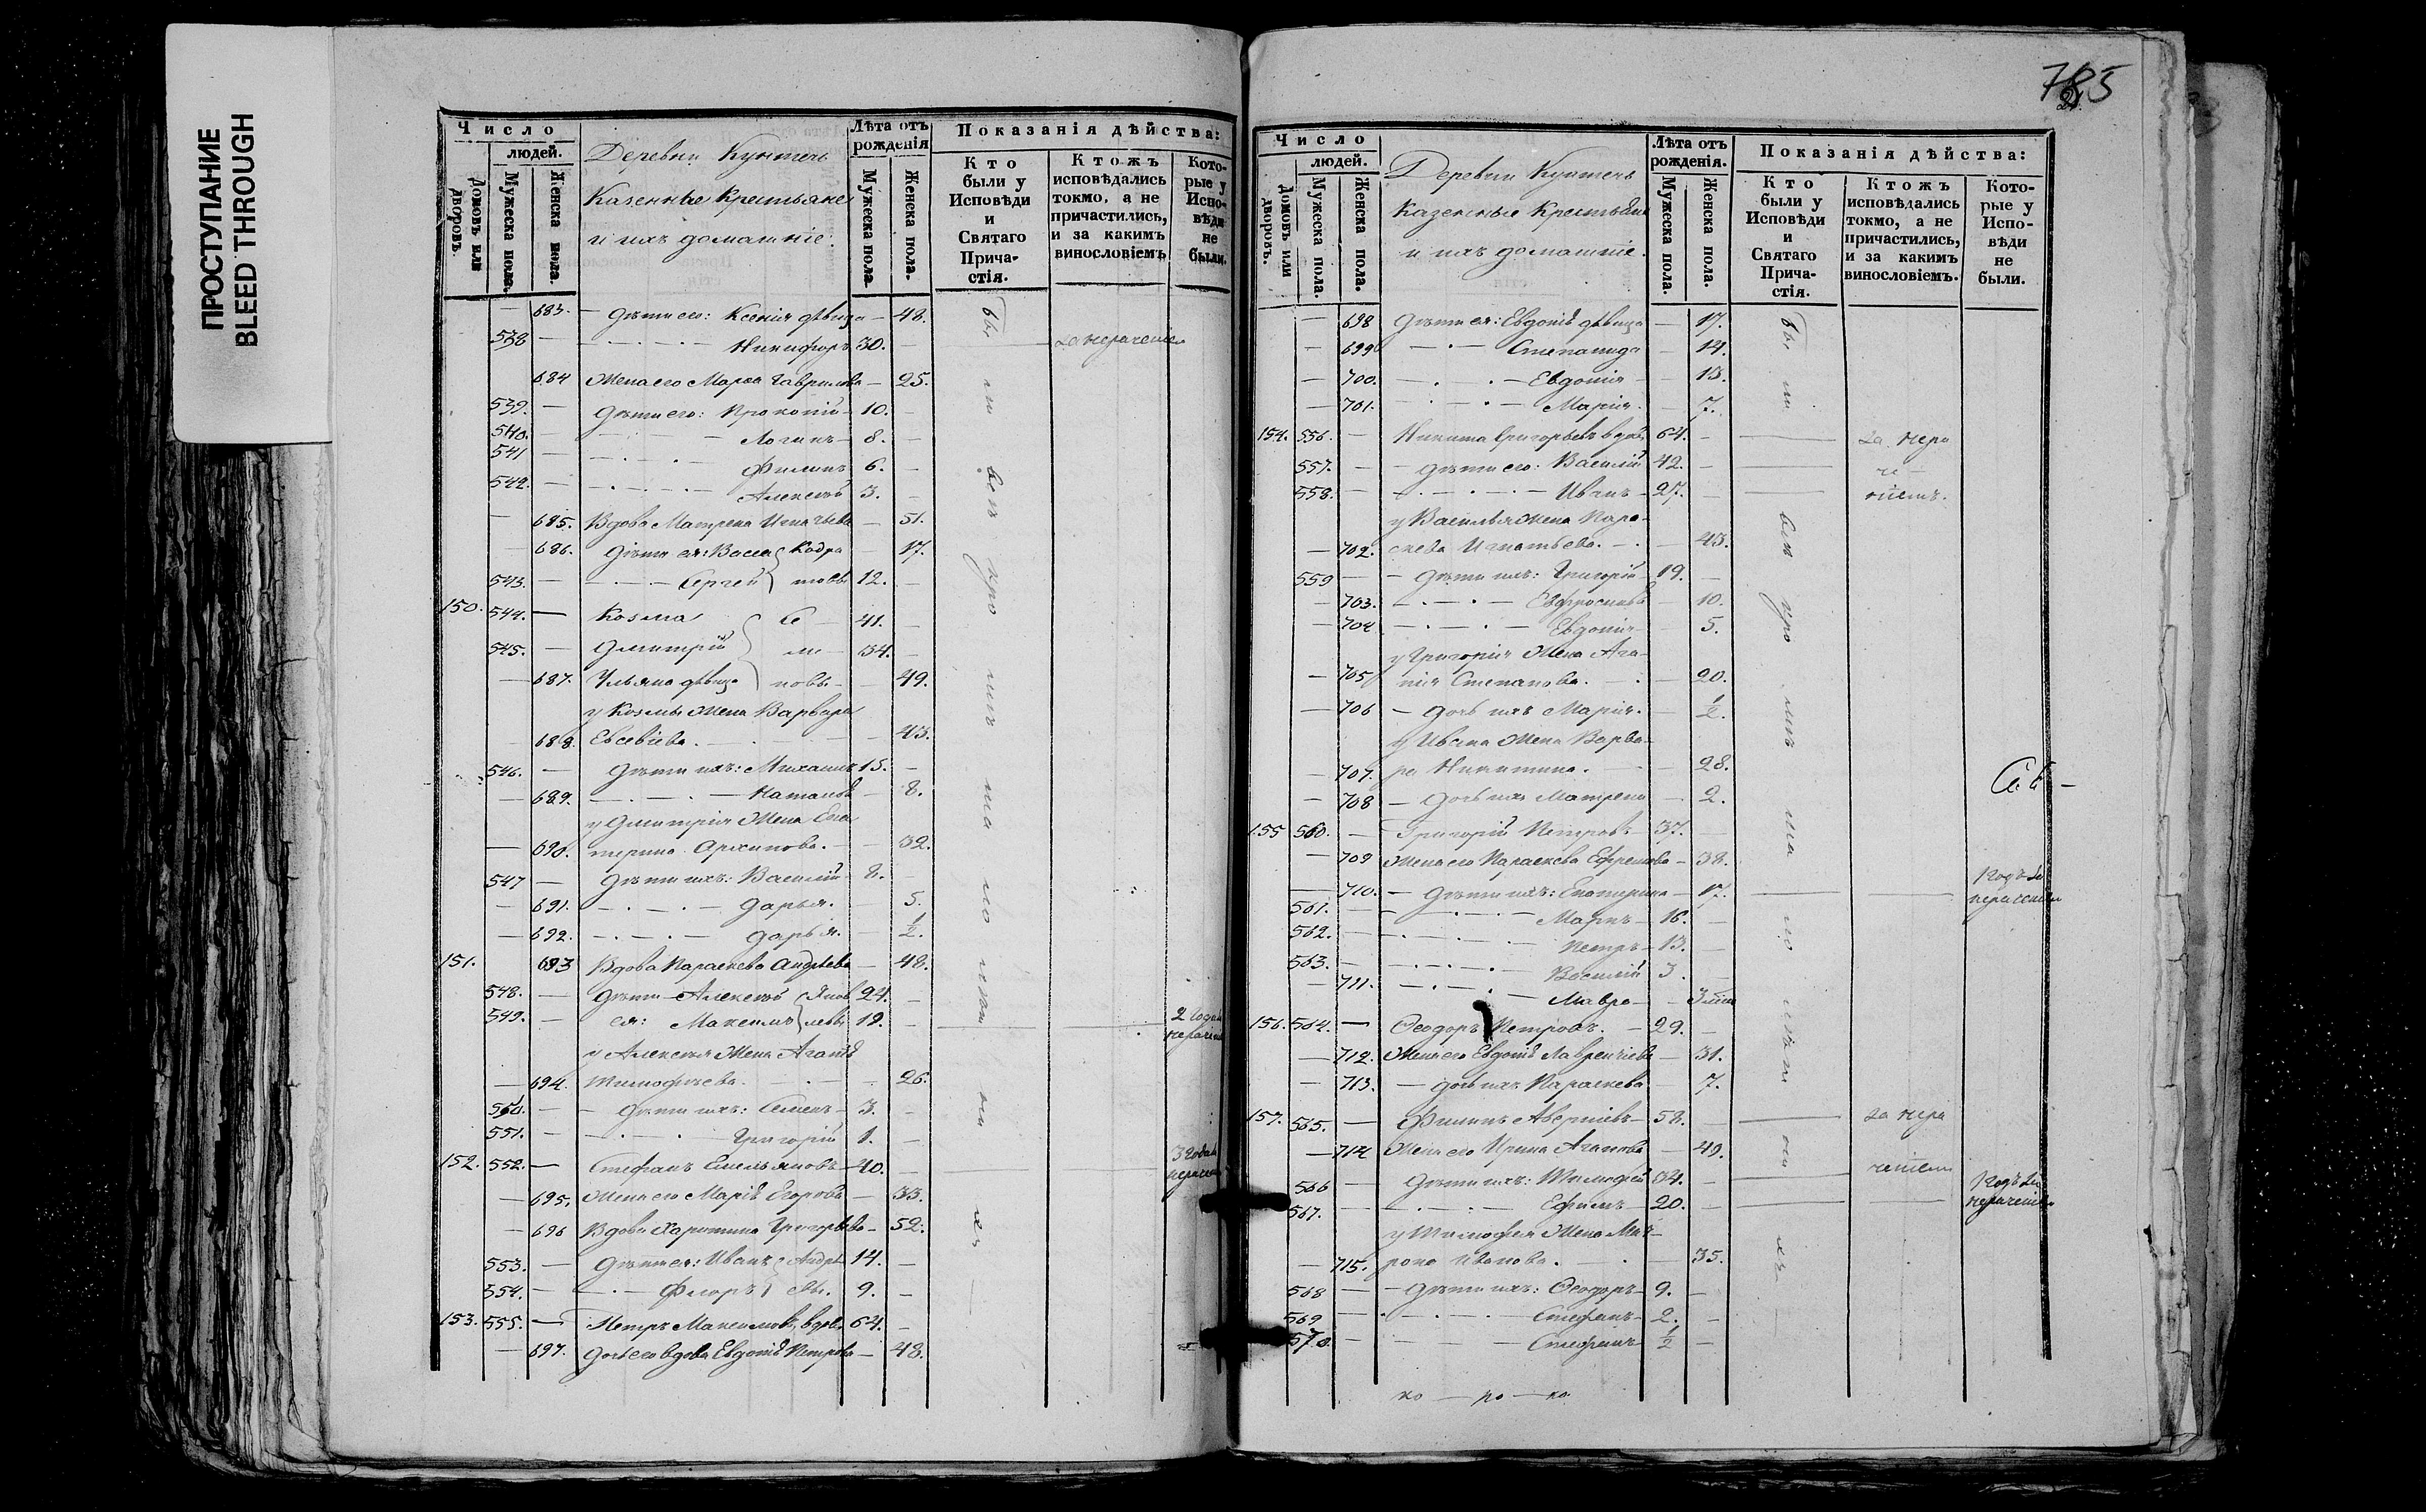 ПРОСТУПАНИЕ
BLEED THROUGH
Число
людей.
Домовъ или дворовъ.
Мужеска пола.
Женска пола.
Деревни Кунтечь
Казенные Крестьяне
и ихъ домашніе.
Лѣта отъ рожденія
Мужеска пола.
Женска пола.
Показанія дѣйства:
Кто были у Исповѣди и Святаго Прича-стія.
Ктожъ исповѣдались токмо, а не причастились, и за какимъ винословіемъ
Кото-рые у Испо-вѣди не были.
683. – дѣти его: Ксенія дѣвица – 48.
538 – Никифоръ 30. – за нераченіем
684 Жена его Марѳа Гаврилова – 25.
539. – дѣти его: Прокопій – 10. –
540. – Логинъ – 8. –
541 – Филипъ 6. –
542. – Алексѣй 3. –
685. Вдова Матрена Игнатьева – 51.
686. дѣти ея: Васса Кодра – 17.
543. – Сергей товы 12. –
150. 544. – Козма Се – 41. –
545. – Дмитрій ме – 34. –
– 687. Ульяна дѣвица новы – 49.
у Козмы Жена Варвара
688. Евсевіева. – 43.
546. – дѣти ихъ: Михаилъ 15. –
– 689. – Наталія – 8.
у Дмитрія Жена Ека
– 690. терина Архипова. – 32.
547 – дѣти ихъ: Василій – 8. –
– 691. – Дарья. – 5.
– 692. – Дарья. – 1/2.
151. 693 Вдова Параскева Андрѣева – 48.
548. – дѣти Алексѣй Яков 24. –
549. – ея: Максимъ левы 19. – 2 года нерачен
у Алексѣя Жена Агафія
– 694. Тимофеева. – 26.
550. – дѣти ихъ: Семенъ – 3. –
551. – Григорій 1. –
152. 552. – Стефанъ Емельяновъ – 40. – 3 года нерачен
– 695. Жена его Марія Егорова – 33.
– 696 Вдова Харитина Григорьева – 52.
553. – дѣти ея: Иванъ Андре 14. –
554. – Флоръ евы. 9. –
153. 555. – Петръ Максимовъ вдовъ 64. –
– 697. дочь его вдова Евдокія Петрова – 48.
бы ли всѣ кро мѣ та ко чен ны хъ
785
Число
людей.
Домовъ или дворовъ.
Мужеска пола.
Женска пола.
Деревни Кунтечь
Казенные Крестьяне
и ихъ домашніе.
Лѣта отъ рожденія.
Мужеска пола.
Женска пола.
Показанія дѣйства:
Кто были у Исповѣди и Святаго Прича-стія.
Ктожъ исповѣдались токмо, а не причастились, и за какимъ винословіемъ.
Кото-рые у Испо-вѣди не были.
– 698 дѣти ея: Евдокія дѣвица – 17.
– 699 – Степанида – 14.
– 700. – Евдокія – 13.
– 701. – Марія. – 7.
154. 556. – Никита Григорьевъ вдовъ 64. – за нера
557. – дѣти его: Василій 42. – че –
558. – Иванъ – 27. – ніемъ.
у Василья Жена Пара-
– 702. скева Игнатьева. – 43.
559 – дѣти ихъ: Григорій – 19. –
– 703. – Евфросинія – 10.
– 704 – Евдокія – 5.
у Григорія Жена Ага-
– 705 пія Степанова. – 20.
– 706 – дочь ихъ Марія. – 1/2.
у Ивана Жена Варва-
– 707. ра Никитина. – 28.
– 708 – дочь ихъ Матрена – 2.
155 560. – Григорій Петровъ – 37. –
– 709 Жена его Параскева Ефремова – 38.
– 710. – дѣти ихъ: Екатерина – 17.
561. – Маркъ – 16. –
562. – Петръ – 13. –
563. – Василій 3. –
– 711. – Мавра –
156. 564. – Ѳеодоръ Петровъ. – 29. –
– 712. Жена его Евдокія Лаврентіева – 31.
– 713. – дочь ихъ Параскева – 7.
157. 565. – Филипъ Аверкіевъ – 58. – за нера
– 714 Жена его Ирина Агапова – 49. ченіем
566 – дѣти ихъ: Тимофей 34. –
567. – Ефимъ – 20. –
у Тимофея Жена Мат-
– 715. рона Иванова. – 35.
568 – дѣти ихъ: Ѳеодоръ – 9. –
569 – Стефанъ – 2. –
570. – Стефанъ 1/2 –
ко – ро – ко